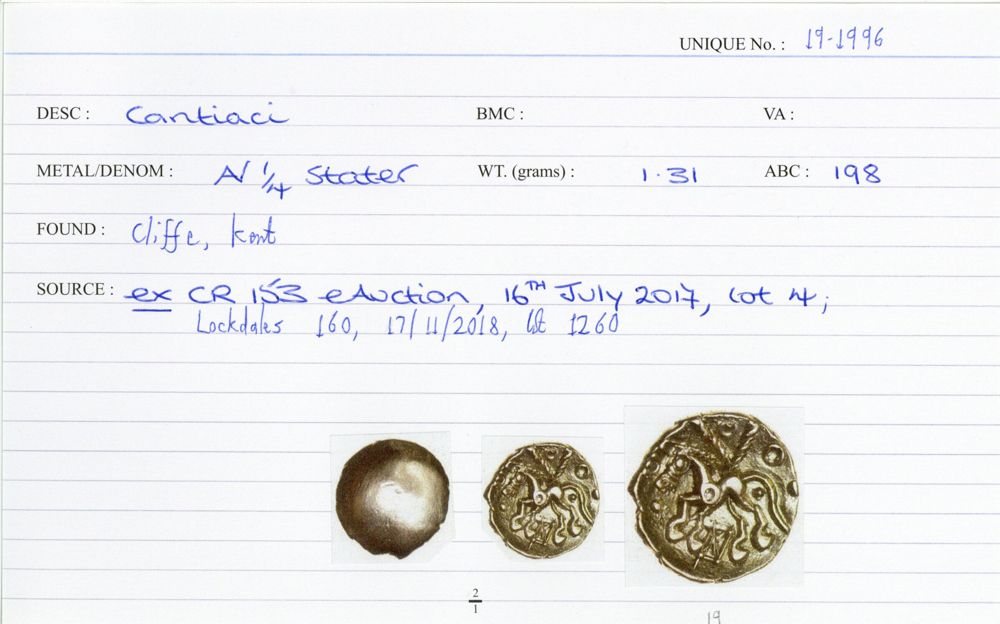 UNIQUE No. : 19-1996
DESC : Cantiaci BMC : VA :
METAL/DENOM : AV 1/4 Stater WT. (grams) : 1.31 ABC : 198
FOUND : Cliffe, Kent
SOURCE : ex CR 153 eAuction, 16TH July 2017, lot 4;
Lockdales 160, 17/11/2018, lot 1260
2/1
19